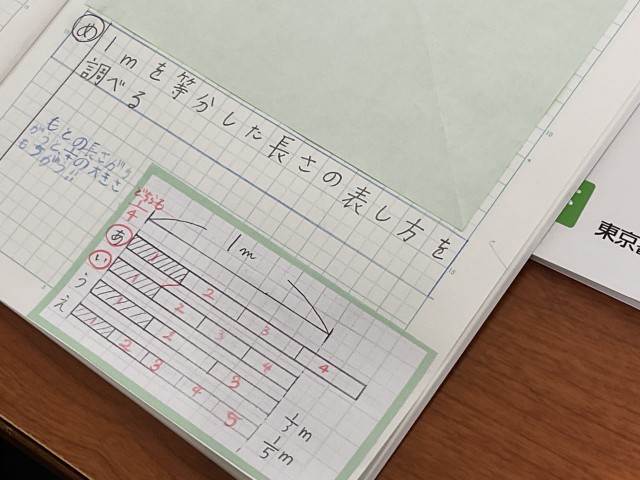 め
1mを等分した長さの表し方を
調べる
もとの長さがち
がうと、その大きさ
もちがう!!
どちらも
1/4
1m
あ
い
う
え
1 2 3
1 2 3 4 4
1 2 3
1 2 3 4 5
1/3m
1/5m
東京